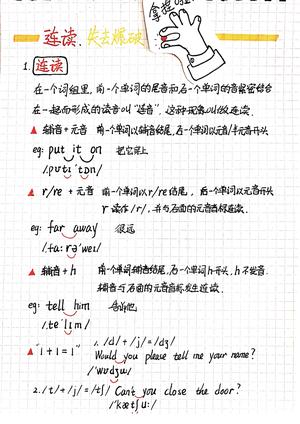 拿捏
连读、失去爆破
1. 连读
在一个词组里,前一个单词的尾音和后一个单词的首音紧密结合
在一起而形成的读音叫"连音",这种现象叫做连读.
▲ 辅音+元音 前一个单词以辅音结尾,后一个单词以元音/半元音开头
eg: put it on 把它穿上
/.pʊtɪ'tɒn/
▲ r/re + 元音 前一个单词以r/re结尾, 后一个单词以元音开头
r 读作/r/,并与后面的元音音标连读.
eg: far away 很远
/.fɑːrə'weɪ/
▲ 辅音+h 前一个单词辅音结尾,后一个单词h开头,h不发音.
辅音与后面的元音音标发生连读.
eg: tell him 告诉他
/.te'lɪm/
▲ "1+1=1" 1. /d/+/j/=/dʒ/
Would you please tell me your name?
/'wʊdʒuː/
2. /t/+/j/=/tʃ/ Can't you close the door?
/'kætʃuː/